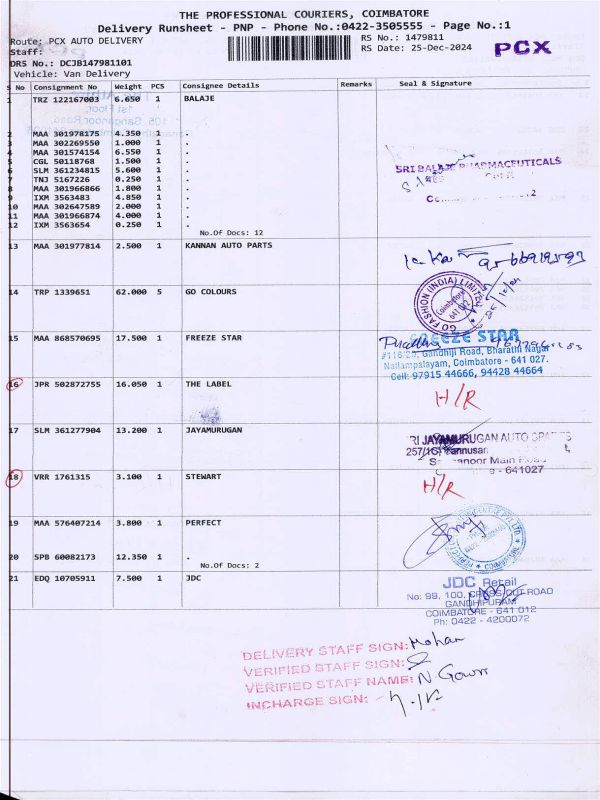 THE PROFESSIONAL COURIERS, COIMBATORE
Delivery Runsheet - PNP - Phone No.:0422-3505555 - Page No.:1
Route: PCX AUTO DELIVERY RS No.: 1479811
Staff: RS Date: 25-Dec-2024 PCX
DRS No.: DCJB147981101
Vehicle: Van Delivery
S No Consignment No Weight PCS Consignee Details Remarks Seal & Signature
1 TRZ 122167003 6.650 1 BALAJE
2 MAA 301978175 4.350 1 .
3 MAA 302269550 1.000 1 .
4 MAA 301574154 6.550 1 .
5 CGL 50118768 1.500 1 .
6 SLM 361234815 5.600 1 .
7 TNJ 5167226 0.250 1 .
8 MAA 301966866 1.800 1 .
9 IXM 3563483 4.850 1 .
10 MAA 302647589 2.000 1 .
11 MAA 301966874 4.000 1 .
12 IXM 3563654 0.250 1 .
No.Of Docs: 12
SRI BALAJE PHARMACEUTICALS
13 MAA 301977814 2.500 1 KANNAN AUTO PARTS
14 TRP 1339651 62.000 5 GO COLOURS
GO FASHION (INDIA) LIMITED
Coimbatore
641 012
15 MAA 868570695 17.500 1 FREEZE STAR
FREEZE STAR
Gandhiji Road, Bharathi Nagar
Nallampalayam, Coimbatore - 641 027.
Cell: 97915 44666, 94428 44664
16 JPR 502872755 16.050 1 THE LABEL
H/R
17 SLM 361277904 13.200 1 JAYAMURUGAN
RI JAYAMURUGAN AUTO
Main Road
- 641027
18 VRR 1761315 3.100 1 STEWART
H/R
19 MAA 576407214 3.800 1 PERFECT
20 SPB 60082173 12.350 1 .
No.Of Docs: 2
21 EDQ 10705911 7.500 1 JDC
JDC Retail
No: 99, 100, CROSS CUT ROAD
GANDHIPURAM
COIMBATORE - 641 012
Ph: 0422 - 4200072
DELIVERY STAFF SIGN: Mohan
VERIFIED STAFF SIGN:
VERIFIED STAFF NAME: N Gowri
INCHARGE SIGN: